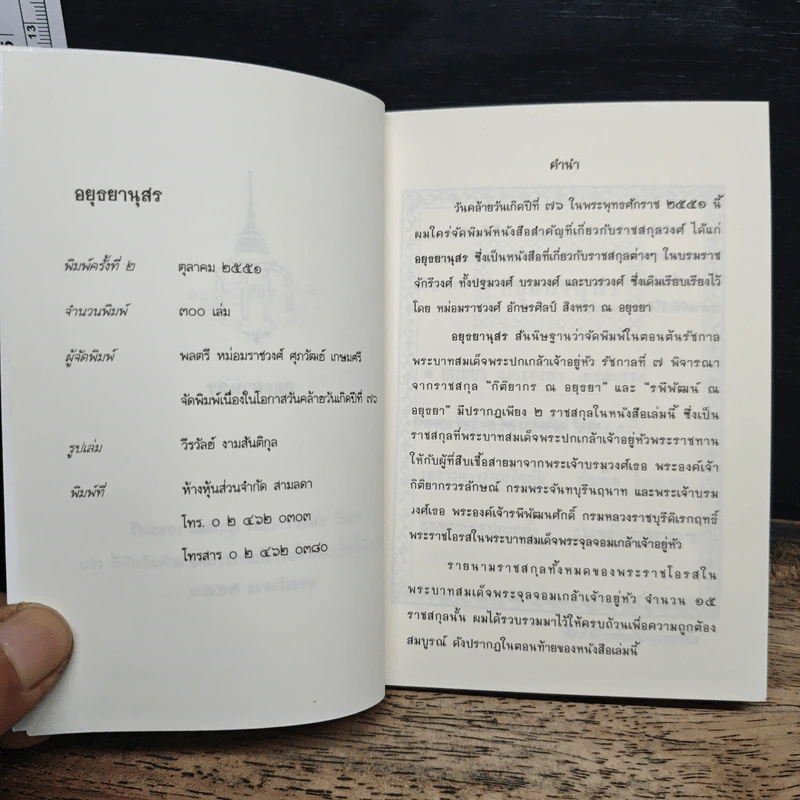 อยุธยานุสร
พิมพ์ครั้งที่ ๒ ตุลาคม ๒๕๕๑
จำนวนพิมพ์ ๓๐๐ เล่ม
ผู้จัดพิมพ์ พลตรี หม่อมราชวงศ์ ศุภวัฒย์ เกษมศรี
จัดพิมพ์เนื่องในโอกาสวันคล้ายวันเกิดปีที่ ๗๖
รูปเล่ม วีรวัลย์ งามสันติกุล
พิมพ์ที่ ห้างหุ้นส่วนจำกัด สามลดา
โทร. ๐ ๒ ๔๖๒ ๐๓๐๓
โทรสาร ๐ ๒ ๔๖๒ ๐๓๘๐
คำนำ
วันคล้ายวันเกิดปีที่ ๗๖ ในพระพุทธศักราช ๒๕๕๑ นี้
ผมใคร่จัดพิมพ์หนังสือสำคัญที่เกี่ยวกับราชสกุลวงศ์ ได้แก่
อยุธยานุสร ซึ่งเป็นหนังสือที่เกี่ยวกับราชสกุลต่างๆ ในบรมราช
จักรีวงศ์ ทั้งปฐมวงศ์ บรมวงศ์ และบวรวงศ์ ซึ่งเดิมเรียบเรียงไว้
โดย หม่อมราชวงศ์ อักษรศิลป์ สิงหรา ณ อยุธยา
อยุธยานุสร สันนิษฐานว่าจัดพิมพ์ในตอนต้นรัชกาล
พระบาทสมเด็จพระปกเกล้าเจ้าอยู่หัว รัชกาลที่ ๗ พิจารณา
จากราชสกุล “กิติยากร ณ อยุธยา” และ “รพีพัฒน์ ณ
อยุธยา” มีปรากฏเพียง ๒ ราชสกุลในหนังสือเล่มนี้ ซึ่งเป็น
ราชสกุลที่พระบาทสมเด็จพระปกเกล้าเจ้าอยู่หัวพระราชทาน
ให้กับผู้ที่สืบเชื้อสายมาจากพระเจ้าบรมวงศ์เธอ พระองค์เจ้า
กิติยากรวรลักษณ์ กรมพระจันทบุรีนฤนาท และพระเจ้าบรม
วงศ์เธอ พระองค์เจ้ารพีพัฒนศักดิ์ กรมหลวงราชบุรีดิเรกฤทธิ์
พระราชโอรสในพระบาทสมเด็จพระจุลจอมเกล้าเจ้าอยู่หัว
รายนามราชสกุลทั้งหมดของพระราชโอรสใน
พระบาทสมเด็จพระจุลจอมเกล้าเจ้าอยู่หัว จำนวน ๑๕
ราชสกุลนั้น ผมได้รวบรวมมาไว้ให้ครบถ้วนเพื่อความถูกต้อง
สมบูรณ์ ดังปรากฏในตอนท้ายของหนังสือเล่มนี้
13